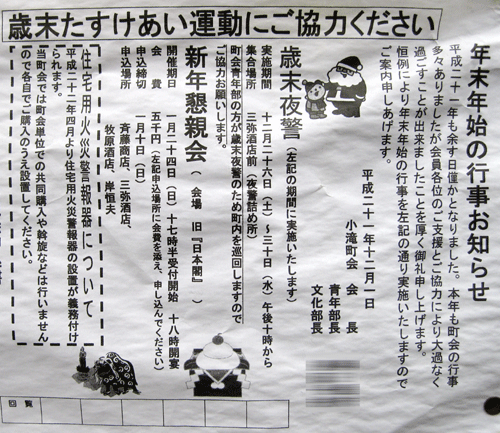 歳末たすけあい運動にご協力ください
年末年始の行事お知らせ
平成二十一年も余す日僅かとなりました。本年も町会の行事
多々ありましたが会員各位のご支援とご協力により大過なく
過ごすことが出来ましたことを厚く御礼申し上げます。
恒例により年末年始の行事を左記の通り実施いたしますので
ご案内申しあげます。
平成二十一年十二月一日
小滝町会 会長
青年部長
文化部長
歳末夜警(左記の期間に実施いたします)
実施期間 十二月二十六日(土)~三十日(水)午後十時から
集合場所 三弥酒店前(夜警詰め所)
町会青年部の方が歳末夜警のため町内を巡回しますので
ご協力お願します。
新年懇親会(会場 旧『日本閣』)
開催期日 一月二十四日(日)十七時半受付開始 十八時開宴
会費 五千円(左記申込場所に会費を添え、申し込んでください)
申込締切 一月十日(日)
申込場所 斉藤商店、三弥酒店、
牧原酒店、岸恒夫
住宅用火災警報器について
平成二十二年四月より住宅用火災警報器の設置が義務付け
られます。
当町会では町会単位での共同購入や斡旋などは行いません
ので各自でご購入のうえ設置してください。
回覧